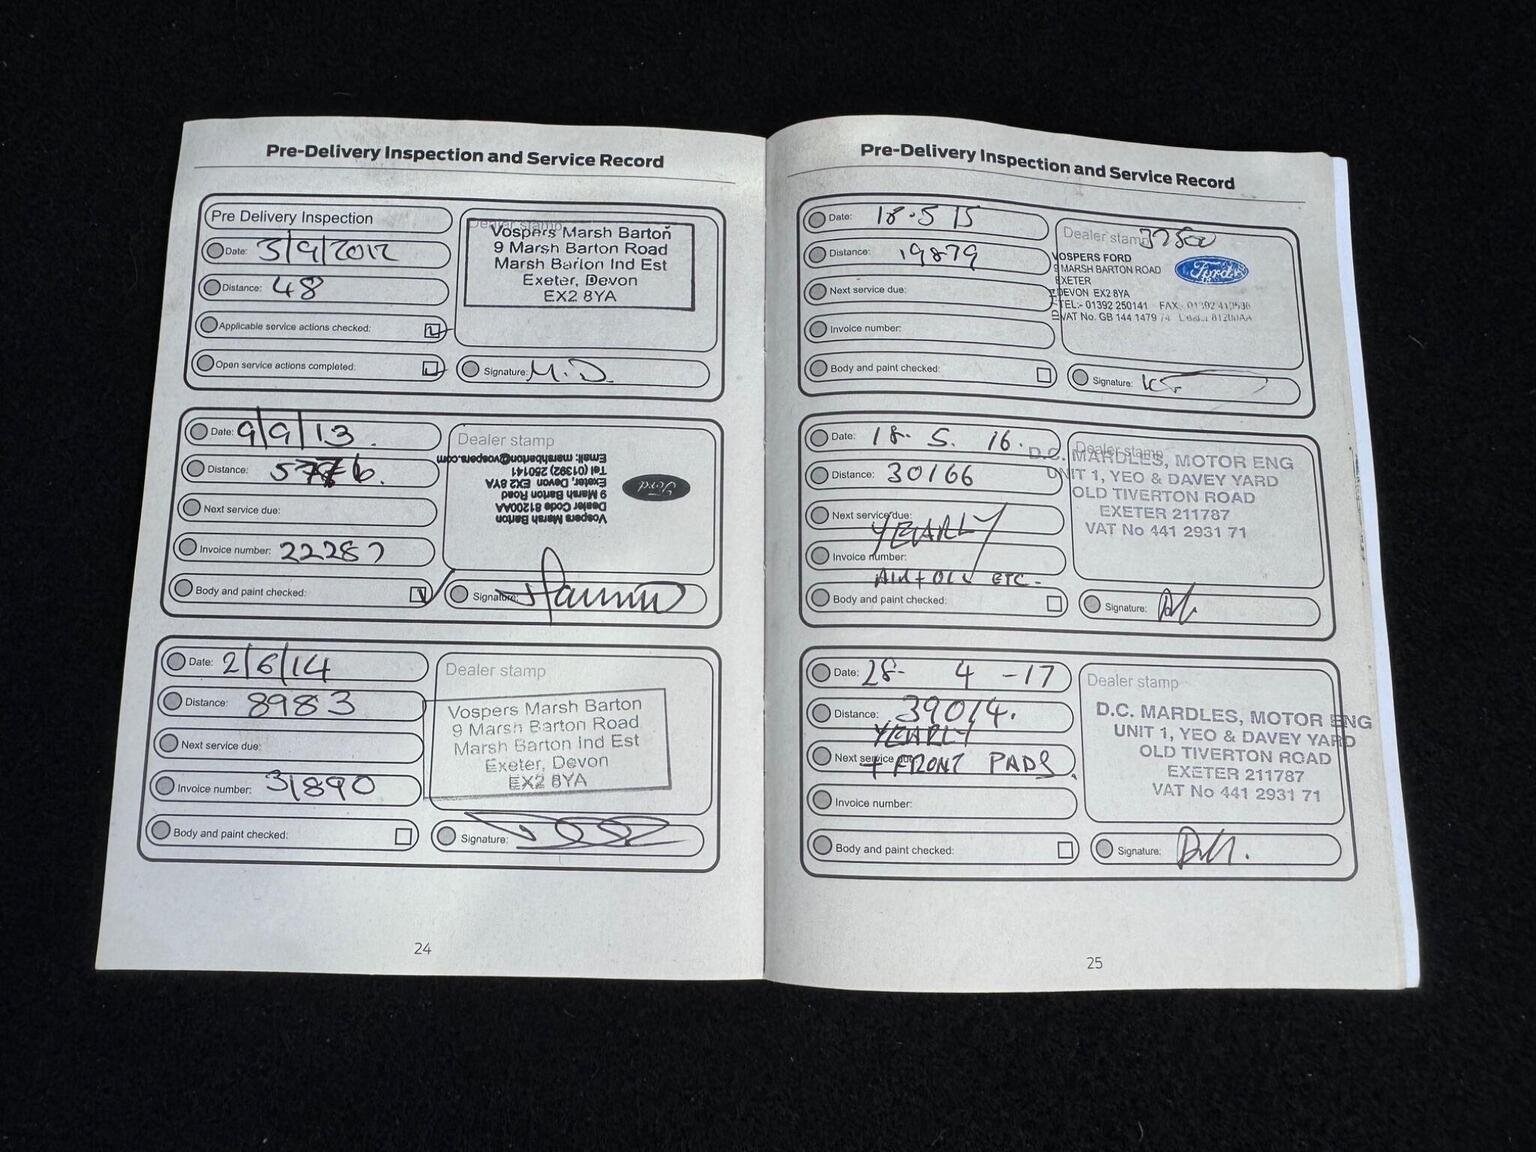 Pre-Delivery Inspection and Service Record
Pre Delivery Inspection
Date: 3/9/2012
Distance: 48
Applicable service actions checked:
Open service actions completed:
Dealer stamp
Vospers Marsh Barton
9 Marsh Barton Road
Marsh Barton Ind Est
Exeter, Devon
EX2 8YA
Signature: M.D.
Date: 9/9/13.
Distance:
Next service due:
Invoice number: 22287
Body and paint checked:
Dealer stamp
Vospers Marsh Barton
Dealer Code 81200AA
9 Marsh Barton Road
Exeter, Devon EX2 8YA
Tel (01392) 250141
Email: marshbarton@vospers.com
Ford
Signature:
Date: 2/6/14
Distance: 8983
Next service due:
Invoice number: 31890
Body and paint checked:
Dealer stamp
Vospers Marsh Barton
9 Marsh Barton Road
Marsh Barton Ind Est
Exeter, Devon
EX2 8YA
Signature:
24
Pre-Delivery Inspection and Service Record
Date: 18.5 15
Distance: 19879
Next service due:
Invoice number:
Body and paint checked:
Dealer stamp 37500
VOSPERS FORD
9 MARSH BARTON ROAD
EXETER
DEVON EX2 8YA
TEL:- 01392 250141 FAX:- 01392 410536
VAT No. GB 144 1479 74
Ford
Signature:
Date: 18. 5. 16.
Distance: 30166
Next service due: YEARLY
Invoice number:
AIR + OIL ETC.
Body and paint checked:
Dealer stamp
D.C. MARDLES, MOTOR ENG
UNIT 1, YEO & DAVEY YARD
OLD TIVERTON ROAD
EXETER 211787
VAT No 441 2931 71
Signature:
Date: 28- 4 -17
Distance: 39014.
YEARLY
Next service due: + FRONT PADS.
Invoice number:
Body and paint checked:
Dealer stamp
D.C. MARDLES, MOTOR ENG
UNIT 1, YEO & DAVEY YARD
OLD TIVERTON ROAD
EXETER 211787
VAT No 441 2931 71
Signature:
25